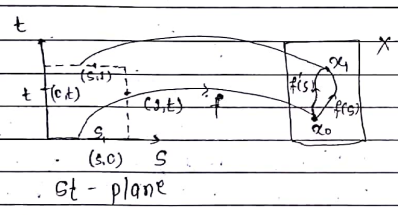 t
X
(s,1)
x₁
t
(0,t)
(1,t)
f
f'(s)
f(s)
x₀
s
(s,0)
S
St - plane